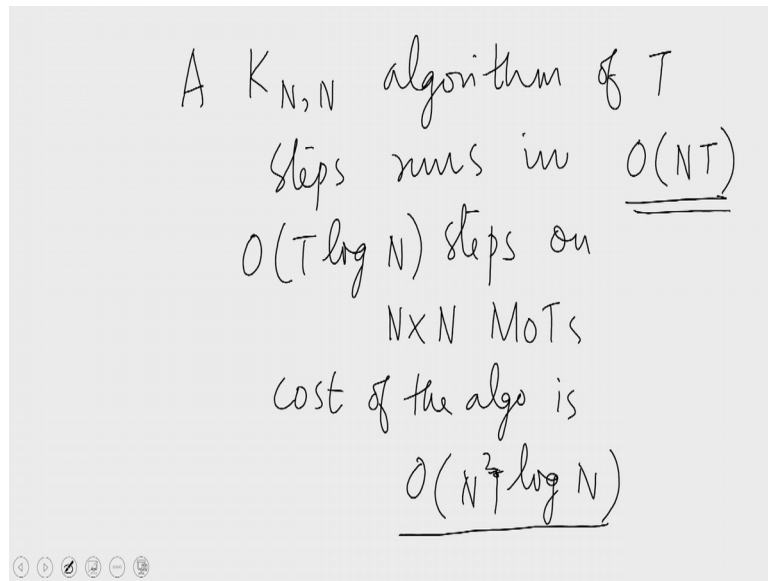 A K_N,N algorithm of T
steps runs in O(NT)
O(T log N) steps on
NxN MoTs
cost of the algo is
O(N²T log N)